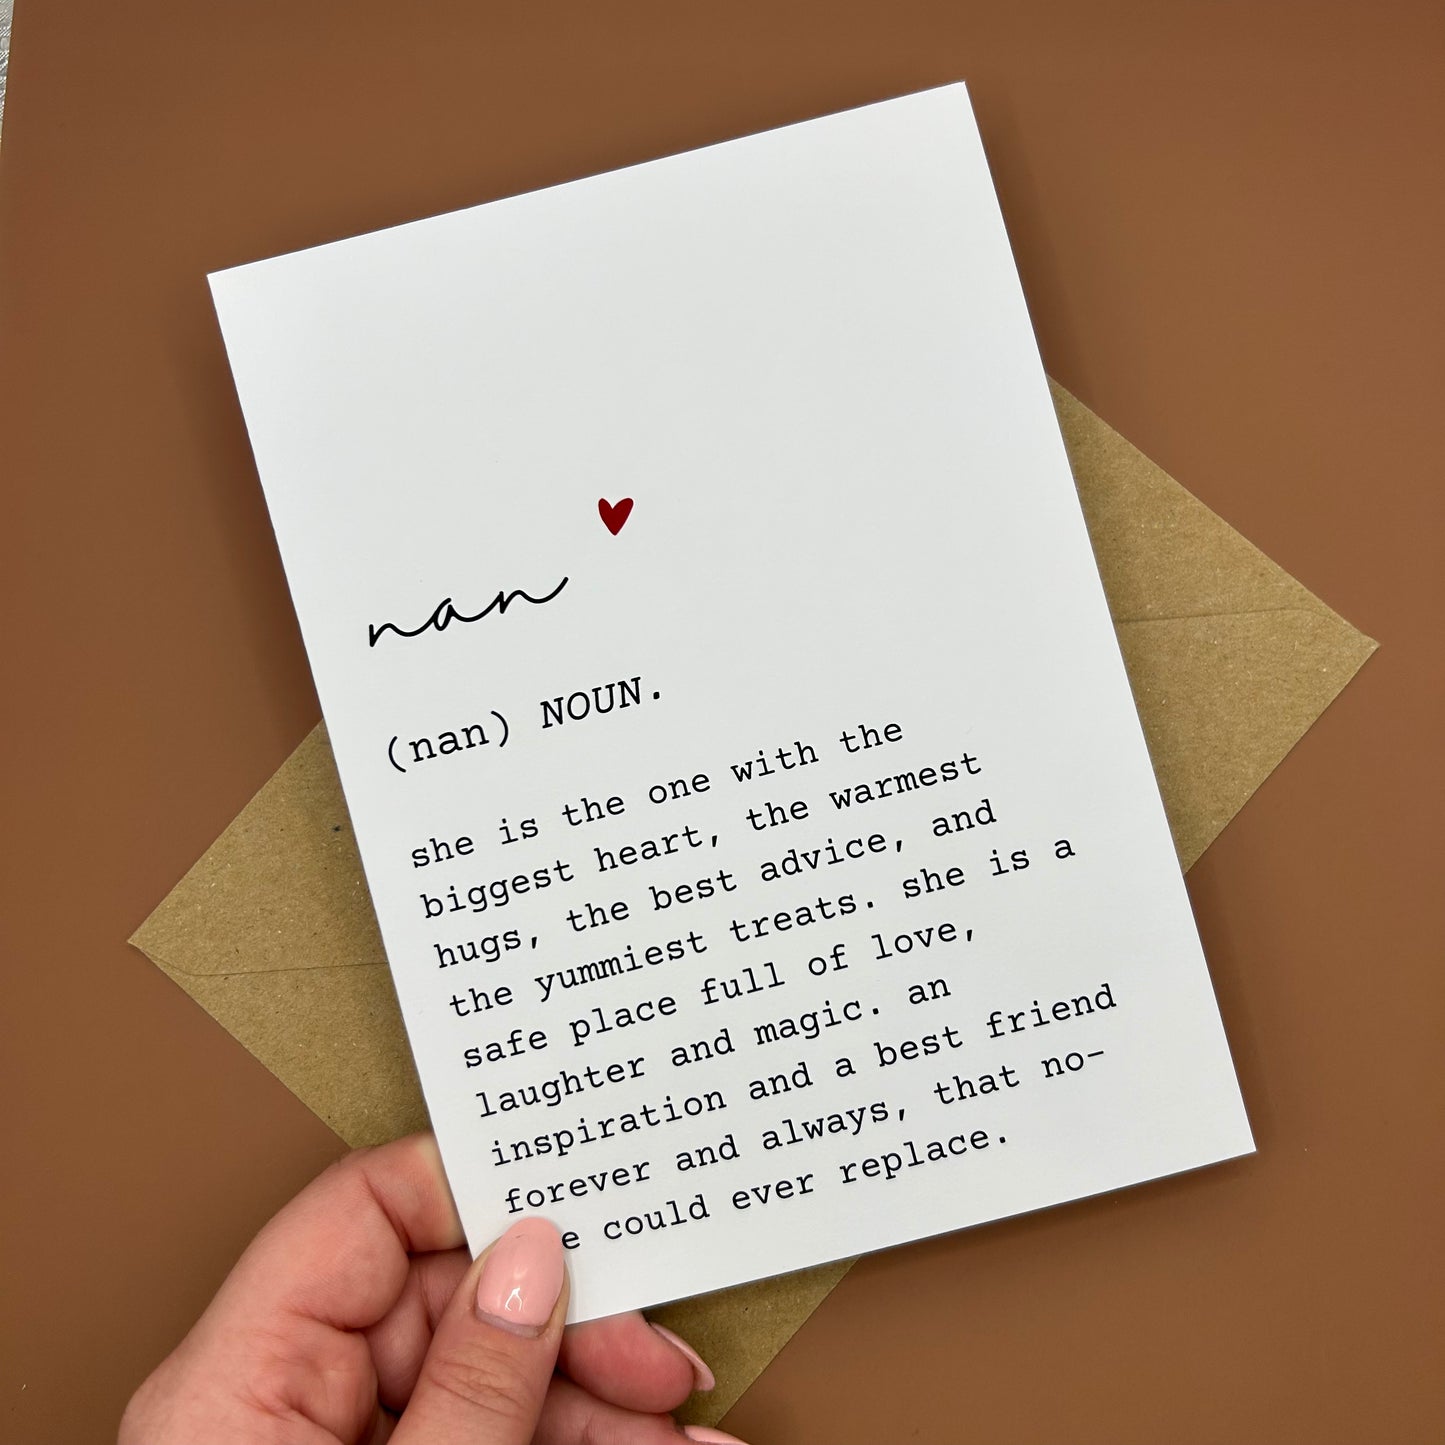 nan
(nan) NOUN.
she is the one with the
biggest heart, the warmest
hugs, the best advice, and
the yummiest treats. she is a
safe place full of love,
laughter and magic. an
inspiration and a best friend
forever and always, that no-
e could ever replace.